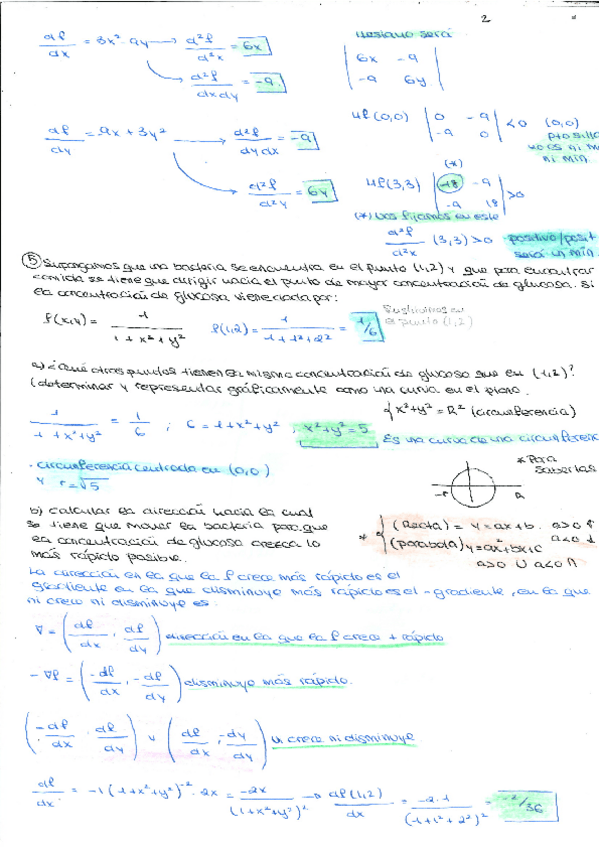 2
df/dx = 3x² - 9y → d²f/d²x = 6x
d²f/dxdy = -9
Hesiano será
|6x -9|
|-9 6y|
df/dy = -9x + 3y² → d²f/dydx = -9
d²f/d²y = 6y
Hf(0,0) |0 -9| |-9 0| < 0 (0,0)
pto silla
no es ni M
ni mín.
(*)
Hf(3,3) |18 -9| |-9 18| > 0
(*) Nos fijamos en este
d²f/d²x (3,3) > 0 positivo/posit
será un mín.
⑤ Supongamos que una bacteria se encuentra en el punto (1,2) y que para encontrar
comida se tiene que dirigir hacia el punto de mayor concentración de glucosa. Si
la concentración de glucosa viene dada por:
f(x,y) = 1/(1 + x² + y²) f(1,2) = 1/(1+1²+2²) = 1/6
Sustituimos en
el punto (1,2)
a) ¿Qué otros puntos tienen la misma concentración de glucosa que en (1,2)?
(determinar y representar gráficamente como una curva en el plano.
1/(1+x²+y²) = 1/6 ; 6 = 1+x²+y² ; x²+y² = 5
{x²+y² = R² (circunferencia)
Es una curva de una circunferenc
· circunferencia centrada en (0,0)
y r=√5
* Para
saberlas
-r R
b) calcular la dirección hacia la cual
se tiene que mover la bacteria para que
la concentración de glucosa crezca lo
más rápido posible.
* { (Recta) = y = ax+b. a>0 ↑
a<0 ↓
(parábola) y = ax²+bx+c
a>0 ∪ a<0 ∩
La dirección en la que la f crece más rápido es el
gradiente en la que disminuye más rápido es el -gradiente, en la que
ni crece ni disminuye es:
∇ = (df/dx, df/dy) dirección en la que la f crece + rápido
-∇f = (-df/dx, -df/dy) disminuye más rápido.
(-df/dx, df/dy) v (df/dx, -dy/dy) ni crece ni disminuye
df/dx = -1(1+x²+y²)⁻² · 2x = -2x/(1+x²+y²)² → df(1,2)/dx = -2·1/(1+1²+2²)² = -2/36